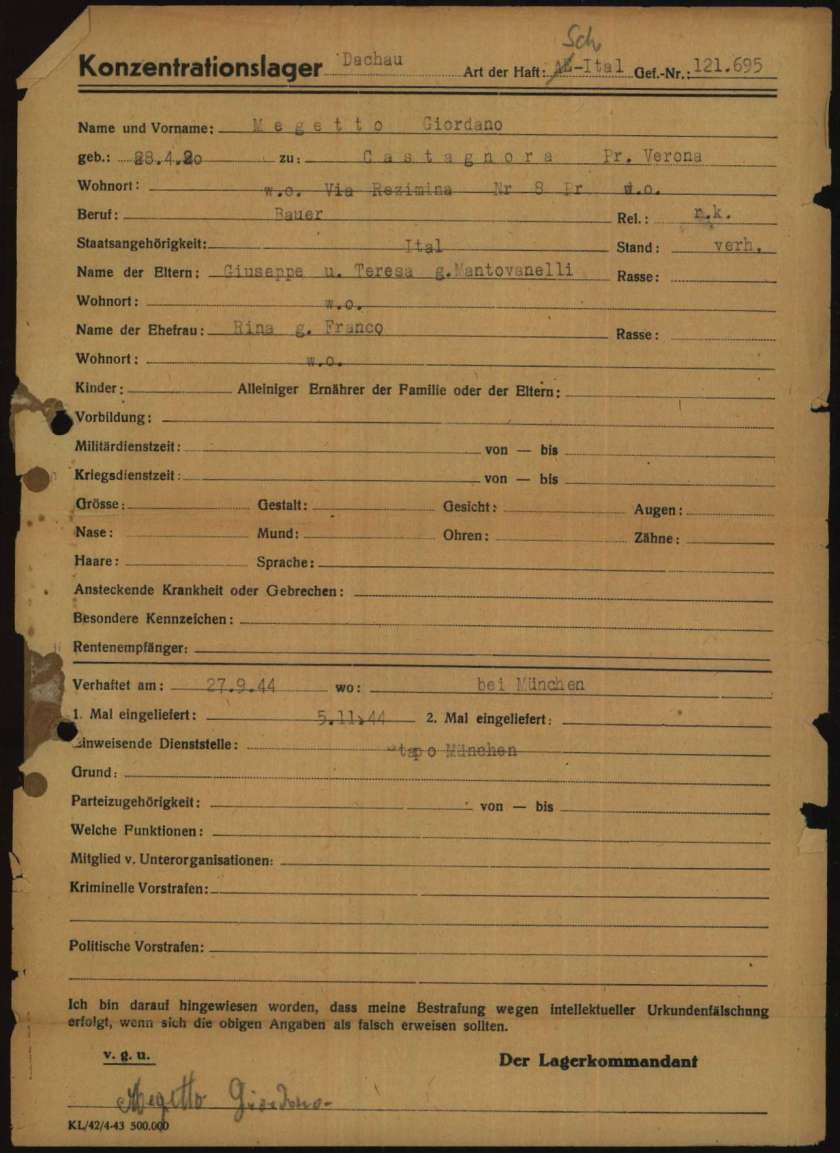 Sch
Konzentrationslager Dachau Art der Haft: AZ-Ital Gef.-Nr.: 121.695
Name und Vorname: Megetto Giordano
geb.: 28.4.20 zu: Castagnora Pr. Verona
Wohnort: w.o. Via Rezimina Nr 8 Pr w.o.
Beruf: Bauer Rel.: r.k.
Staatsangehörigkeit: Ital Stand: verh.
Name der Eltern: Giuseppe u. Teresa g.Mantovanelli Rasse:
Wohnort: w.o.
Name der Ehefrau: Rina g. Franco Rasse:
Wohnort: w.o.
Kinder: Alleiniger Ernährer der Familie oder der Eltern:
Vorbildung:
Militärdienstzeit: von — bis
Kriegsdienstzeit: von — bis
Grösse: Gestalt: Gesicht: Augen:
Nase: Mund: Ohren: Zähne:
Haare: Sprache:
Ansteckende Krankheit oder Gebrechen:
Besondere Kennzeichen:
Rentenempfänger:
Verhaftet am: 27.9.44 wo: bei München
1. Mal eingeliefert: 5.11.44 2. Mal eingeliefert:
Einweisende Dienststelle: tapo München
Grund:
Parteizugehörigkeit: von — bis
Welche Funktionen:
Mitglied v. Unterorganisationen:
Kriminelle Vorstrafen:
Politische Vorstrafen:
Ich bin darauf hingewiesen worden, dass meine Bestrafung wegen intellektueller Urkundenfälschung
erfolgt, wenn sich die obigen Angaben als falsch erweisen sollten.
v. g. u. Der Lagerkommandant
Megetto Giordano
KL/42/4-43 500.000